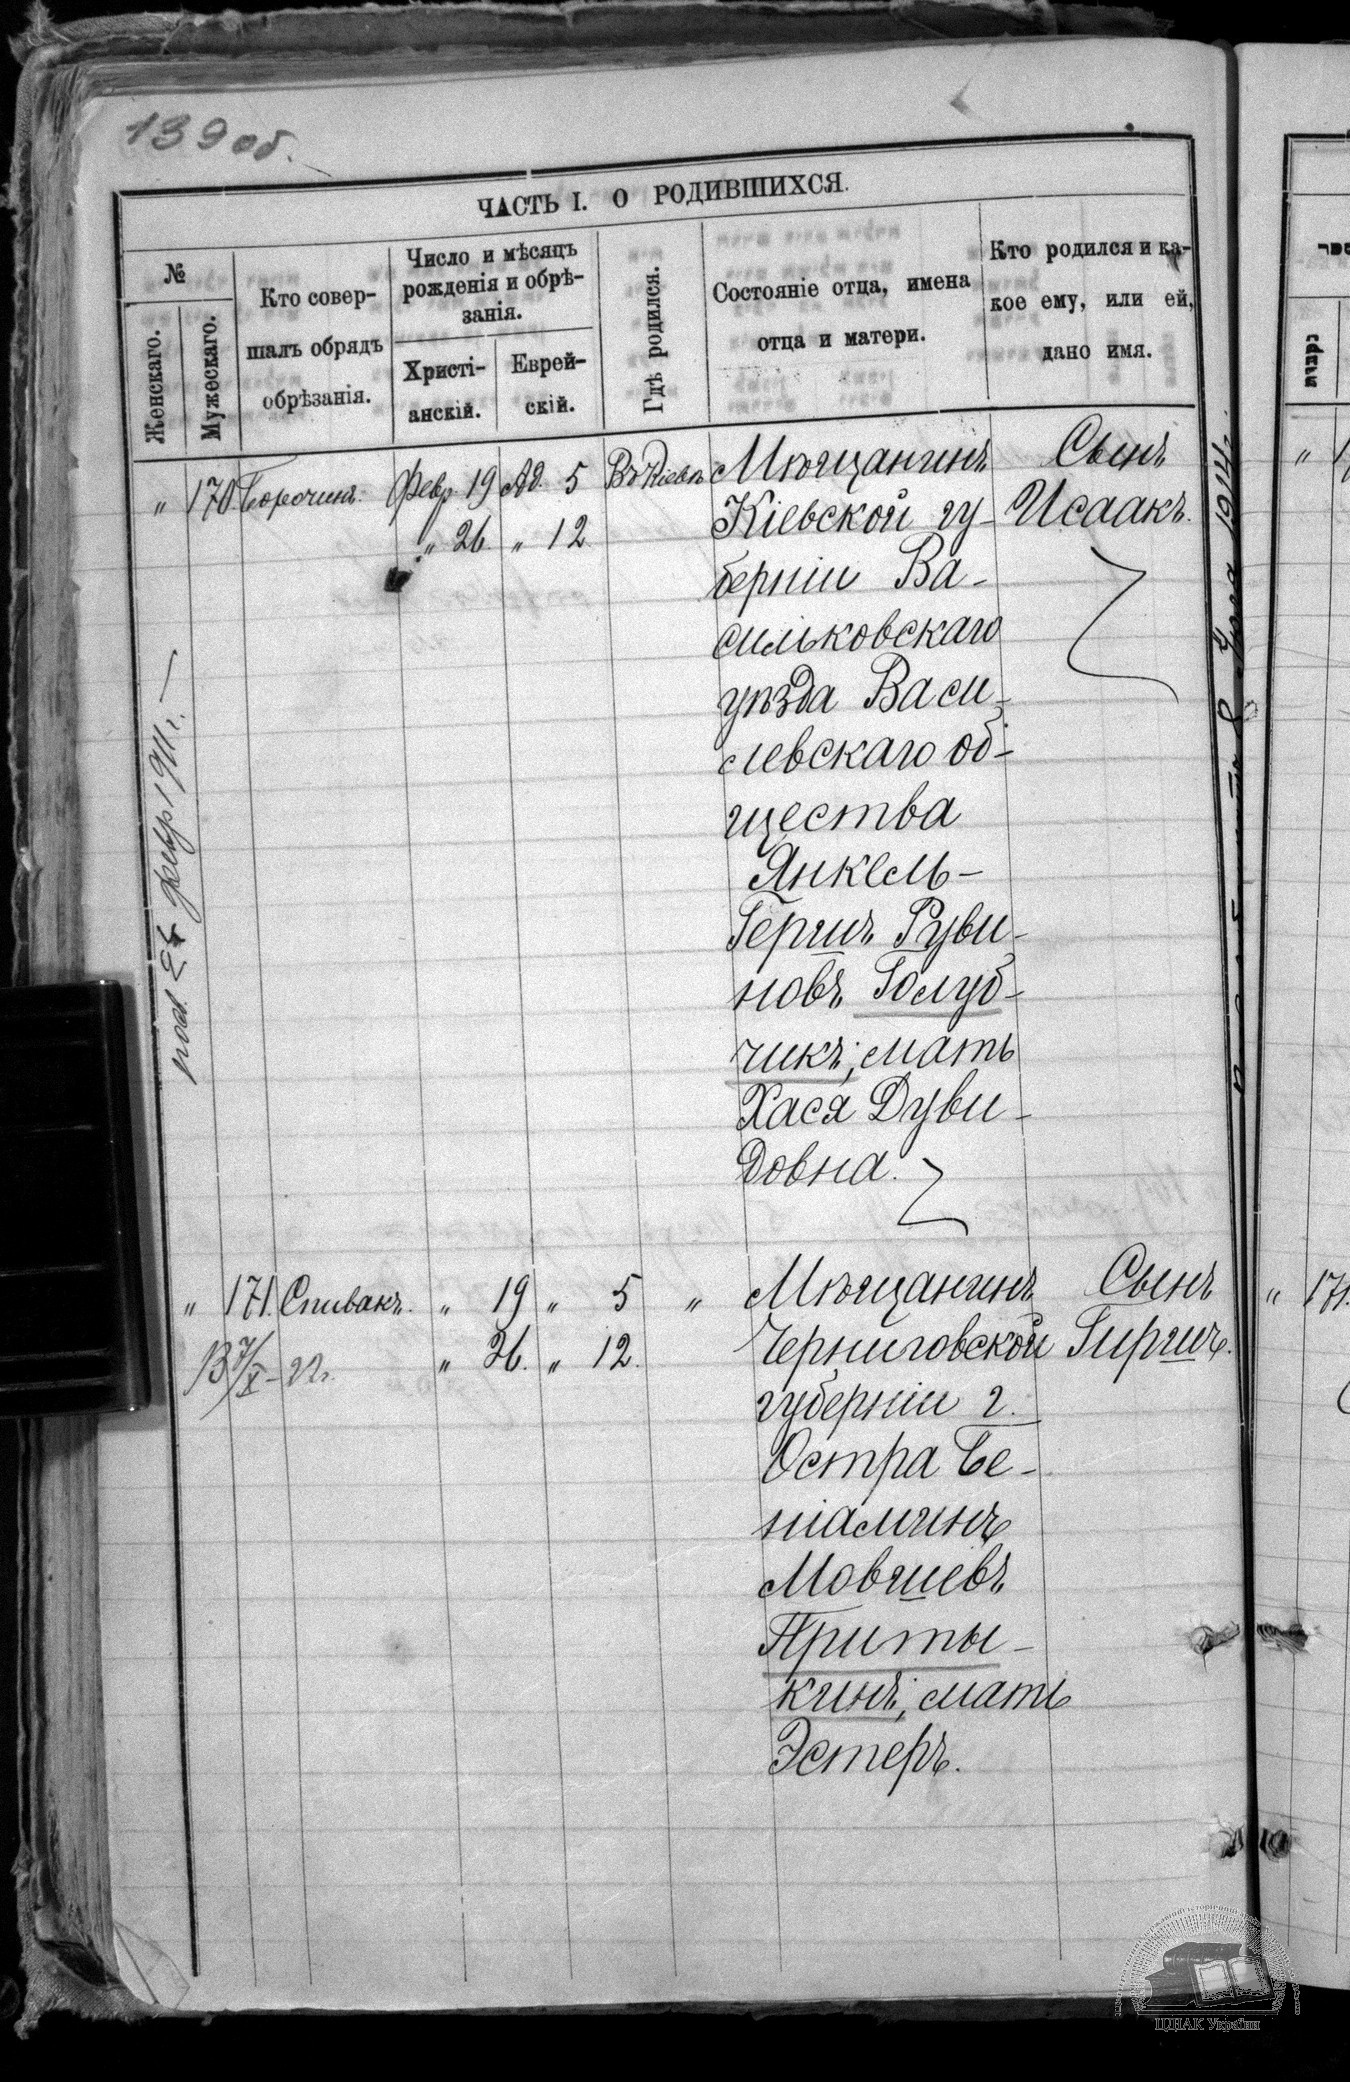 139 об.
ЧАСТЬ I. О РОДИВШИХСЯ.
№
Женскаго.
Мужескаго.
Кто совер-
шалъ обрядъ
обрѣзанія.
Число и мѣсяцъ
рожденія и обрѣ-
занія.
Христі-
анскій.
Еврей-
скій.
Гдѣ родился.
Состояніе отца, имена
отца и матери.
Кто родился и ка-
кое ему, или ей,
дано имя.
" 170. Февр. 19 Ад. 5 Въ Кіевѣ
" 26. " 12
Мѣщанинъ
Кіевской гу-
берніи Ва-
сильковскаго
уѣзда Васи-
левскаго об-
щества
Янкель-
Гершъ Руви-
новъ Голуб-
чикъ; мать
Хася Дуви-
довна.
Сынъ
Исаакъ.
февр 1911 г.
" 171. Спивакъ. " 19 " 5 "
" 26. " 12.
Мѣщанинъ
Черниговской
губерніи г.
Остра Бе-
ніаминъ
Мовшевъ
Приты-
кинъ; мать
Эстеръ.
Сынъ
Гиршъ.
1914 г.
" 171.
ЦДІАК України